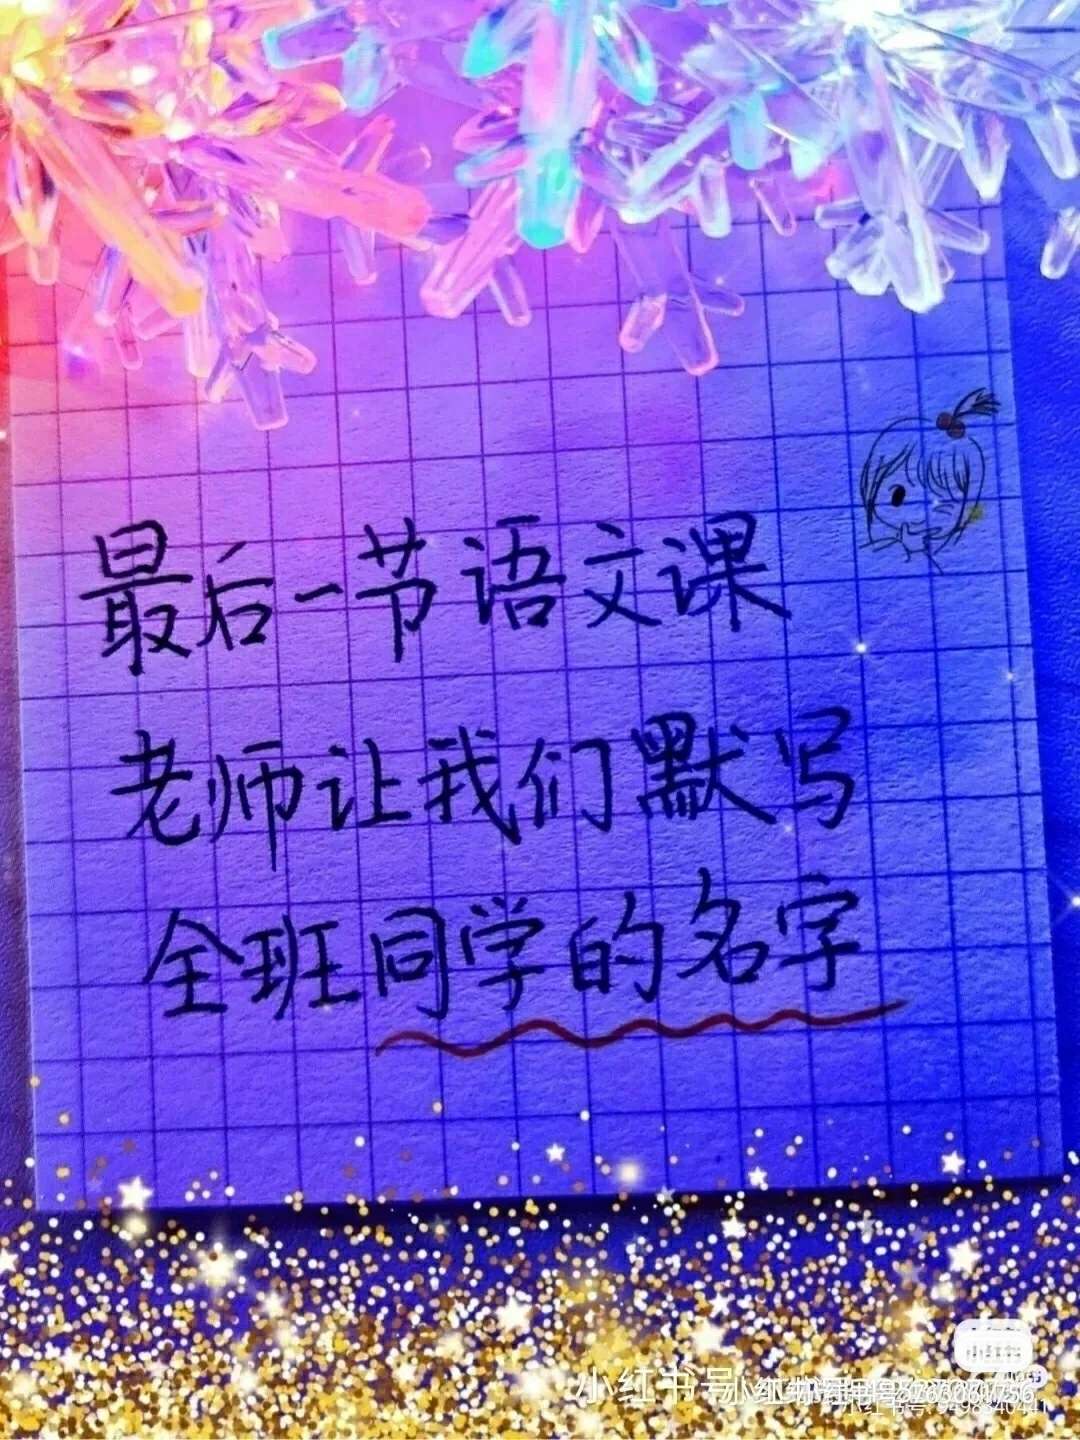 最后一节语文课
老师让我们默写
全班同学的名字
小红书
小红书号